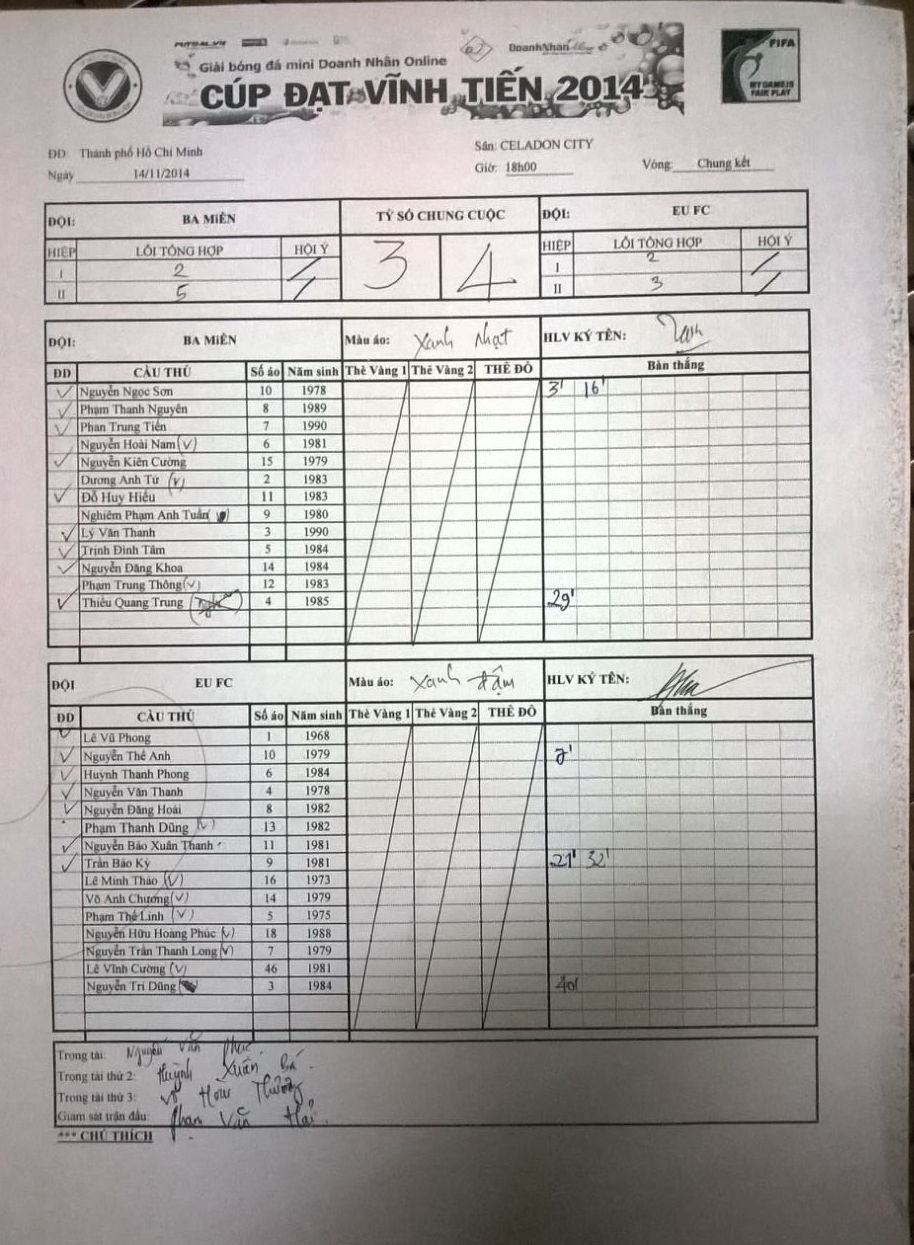 FUTSAL.VN
DoanhNhân
Giải bóng đá mini Doanh Nhân Online
CÚP ĐẠT VĨNH TIẾN 2014
FIFA
MY GAME IS
FAIR PLAY
ĐĐ: Thành phố Hồ Chí Minh Sân: CELADON CITY
Ngày 14/11/2014 Giờ: 18h00 Vòng: Chung kết
ĐỘI: BA MIỀN TỶ SỐ CHUNG CUỘC ĐỘI: EU FC
HIỆP LỖI TỔNG HỢP HỘI Ý 3 4 HIỆP LỖI TỔNG HỢP HỘI Ý
I 2 I 2
II 5 II 3
ĐỘI: BA MIỀN Màu áo: Xanh Nhạt HLV KÝ TÊN:
ĐD CẦU THỦ Số áo Năm sinh Thẻ Vàng 1 Thẻ Vàng 2 THẺ ĐỎ Bàn thắng
✓ Nguyễn Ngọc Sơn 10 1978 3' 16'
✓ Phạm Thanh Nguyên 8 1989
✓ Phan Trung Tiến 7 1990
Nguyễn Hoài Nam (V) 6 1981
✓ Nguyễn Kiên Cường 15 1979
Dương Anh Tứ (V) 2 1983
✓ Đỗ Huy Hiếu 11 1983
Nghiêm Phạm Anh Tuấn 9 1980
✓ Lý Văn Thanh 3 1990
✓ Trịnh Đình Tâm 5 1984
✓ Nguyễn Đăng Khoa 14 1984
Phạm Trung Thông (V) 12 1983
✓ Thiều Quang Trung 4 1985 29'
ĐỘI EU FC Màu áo: Xanh đậm HLV KÝ TÊN:
ĐD CẦU THỦ Số áo Năm sinh Thẻ Vàng 1 Thẻ Vàng 2 THẺ ĐỎ Bàn thắng
✓ Lê Vũ Phong 1 1968
✓ Nguyễn Thế Anh 10 1979 2'
✓ Huỳnh Thanh Phong 6 1984
✓ Nguyễn Văn Thanh 4 1978
✓ Nguyễn Đăng Hoài 8 1982
Phạm Thanh Dũng (V) 13 1982
✓ Nguyễn Bảo Xuân Thanh 11 1981
✓ Trần Bảo Kỳ 9 1981 21' 32'
Lê Minh Thảo (V) 16 1973
Võ Anh Chương (V) 14 1979
Phạm Thế Linh (V) 5 1975
Nguyễn Hữu Hoàng Phúc (V) 18 1988
Nguyễn Trần Thanh Long (V) 7 1979
Lê Vĩnh Cường (V) 46 1981
Nguyễn Trí Dũng 3 1984 40'
Trọng tài: Nguyễn Văn Phúc
Trọng tài thứ 2: Huỳnh Xuân Bá
Trọng tài thứ 3: Thường
Giám sát trận đấu: Phan Văn Hải
*** CHÚ THÍCH